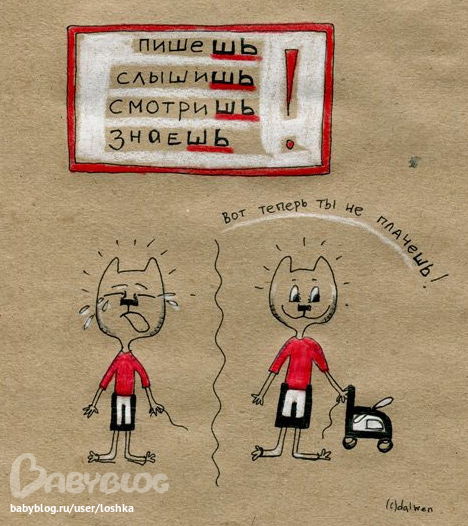 пишешь
слышишь
смотришь
знаешь
!
Вот теперь ты не плачешь!
BABYBLOG
babyblog.ru/user/loshka
(c)dalwen